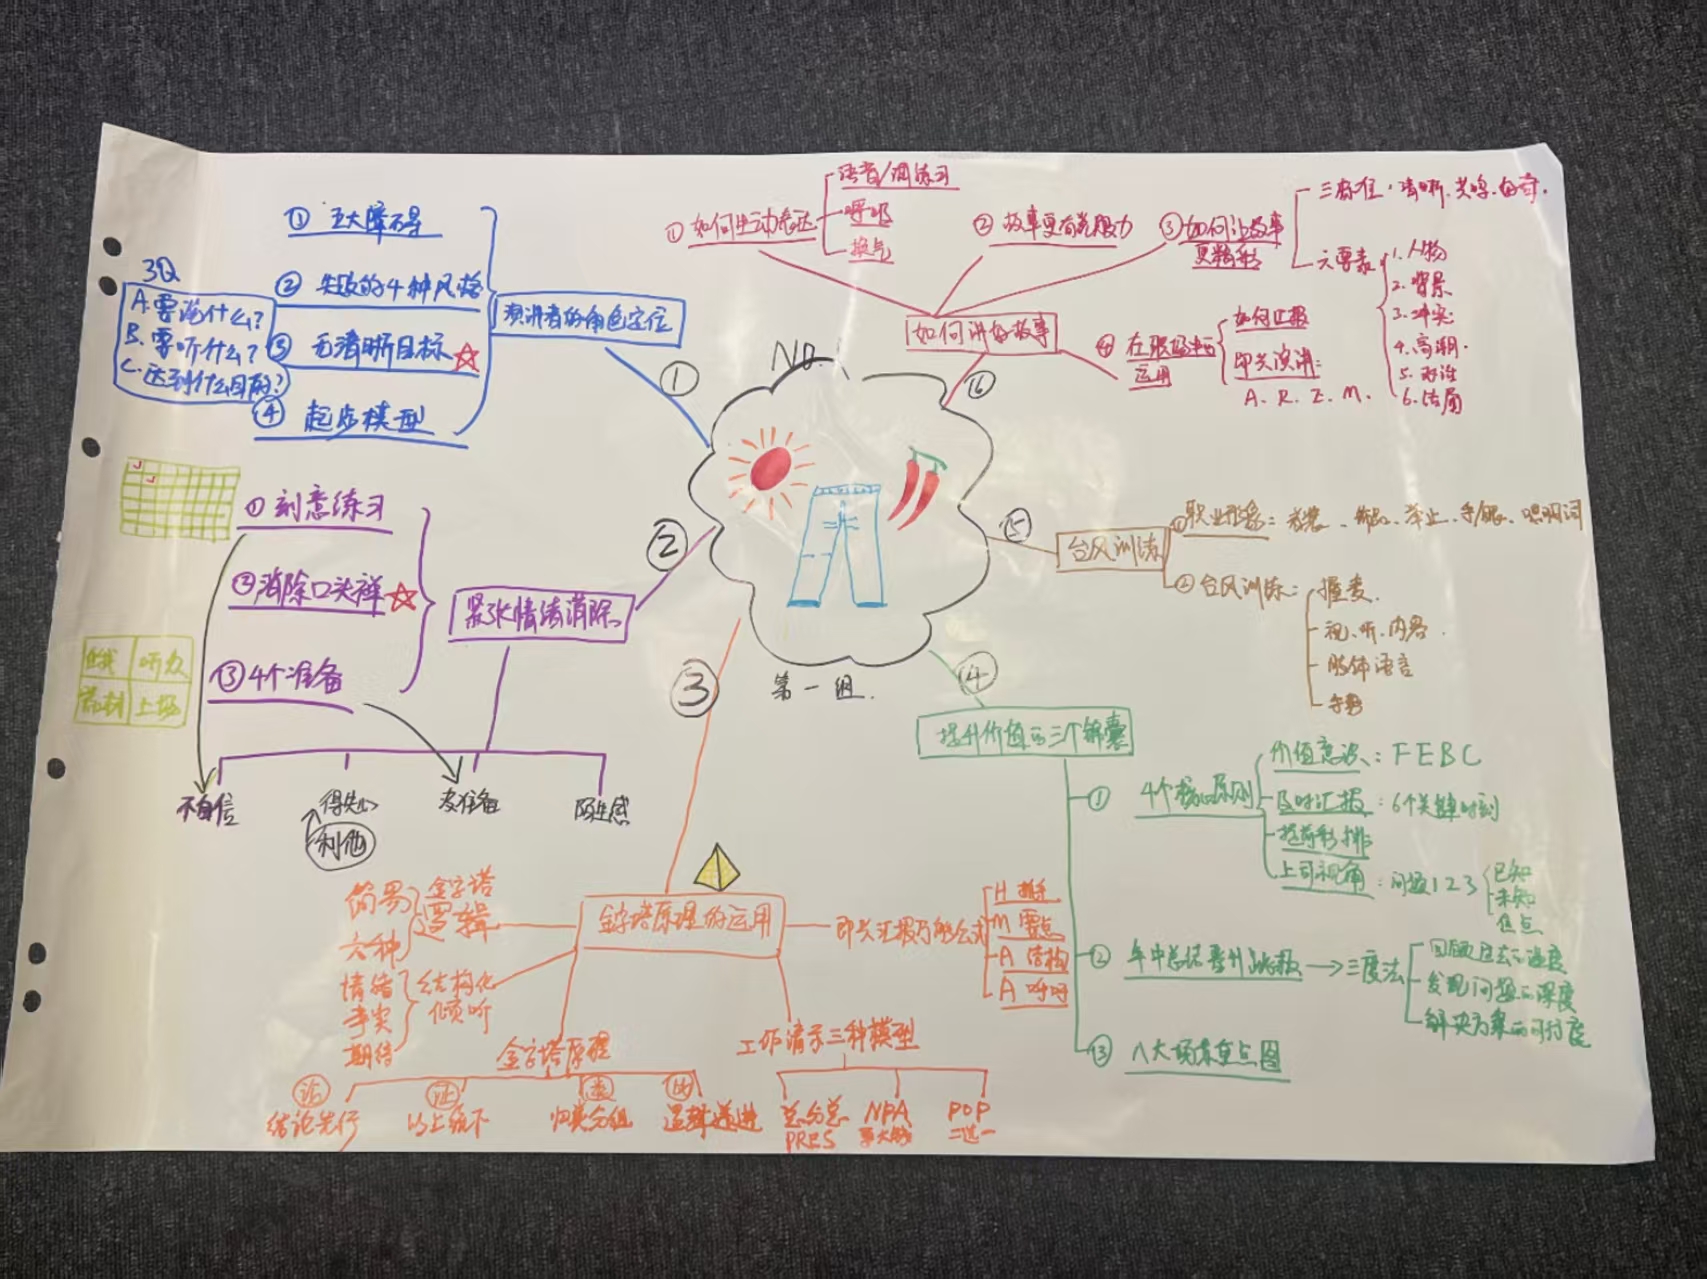 NO.1
第一组.
①
演讲者的角色定位
① 五大障碍
② 失败的4种风格
③ 无清晰目标
④ 起步模型
3Q
A.要说什么?
B.要听什么?
C.达到什么目的?
②
紧张情绪消除
① 刻意练习
② 消除口头禅
③ 4个准备
自我 听众
上场
不自信
得失心
利他
没准备
陌生感
③
金字塔原理的运用
简易
六种
金字塔
逻辑
情绪
事实
期待
结构化
倾听
金字塔原理
论
结论先行
证
以上统下
类
归类分组
比
逻辑递进
工作请示三种模型
总分总
PRES
NPA
POP
二选一
即兴汇报万能公式
H
M 要点
A 结构
A 呼吁
④
提升价值的三个锦囊
① 4个核心原则
价值意识: FEBC
及时汇报: 6个关键时刻
提前彩排
上司视角: 问题123
已知
未知
焦点
② 年中总结晋升述职 → 三度法
回顾过去的温度
发现问题的深度
解决方案的可行度
③ 八大场景重点图
⑤
台风训练
① 职业形象: 着装、饰品、举止、手/眼、
② 台风训练:
握麦.
视、听、内容.
肢体语言
手势
⑥
如何讲好故事
① 如何生动表达
语音/调练习
呼吸
换气
② 故事更有说服力
③ 如何让故事
更精彩
三标准: 清晰.共鸣.
六要素
1.人物
2.背景
3.冲突
4.高潮.
5.对话
6.结局
④ 在职场中的
运用
如何汇报
即兴演讲:
A.R.Z.M.